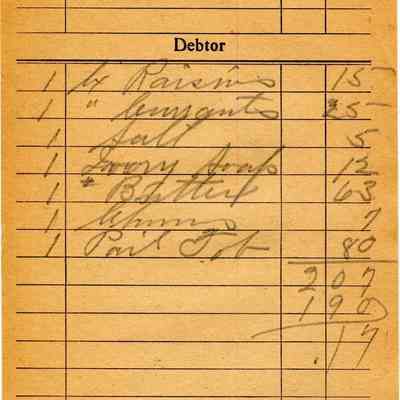 Debtor
1 bx Raisins 15
1 " Currants 25
1 Salt 5
1 Ivory Soap 12
1 # Butter 63
1 7
1 Pail Tob 80
207
190
.17